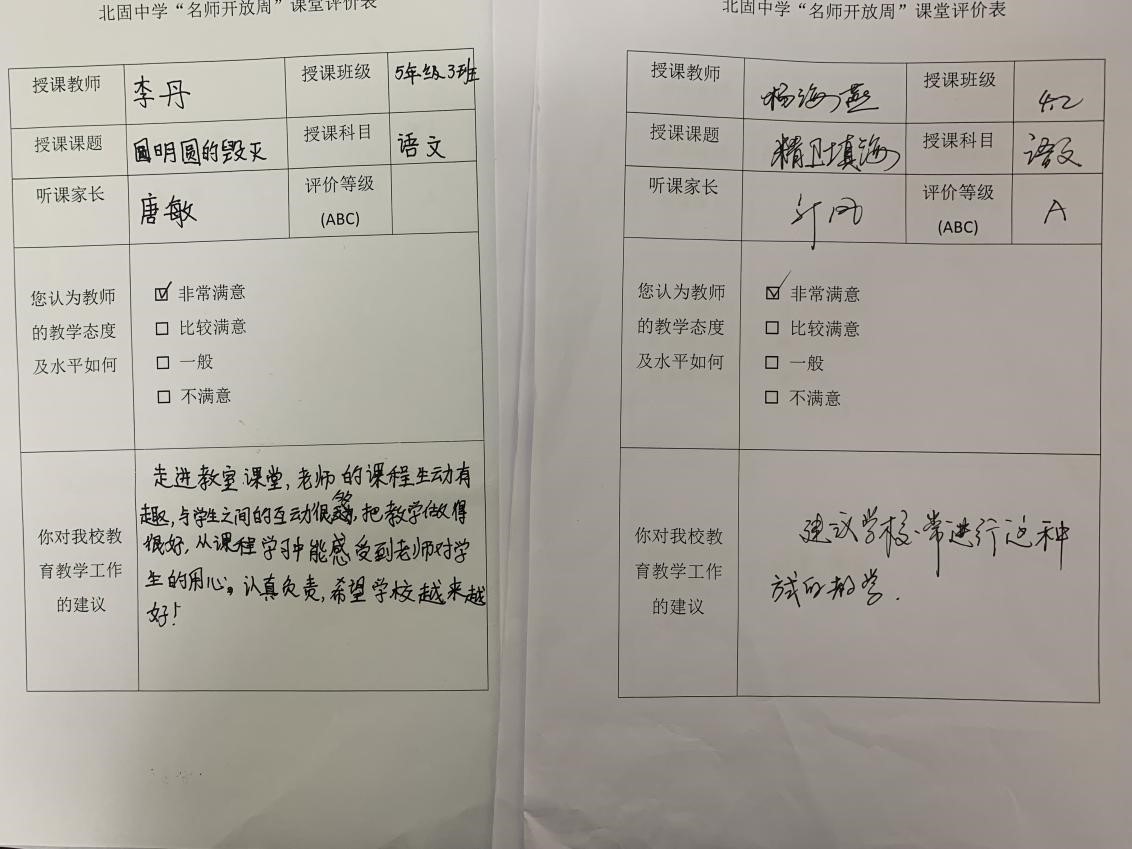 北固中学“名师开放周”课堂评价表
授课教师 李丹 授课班级 5年级3班
授课课题 圆明圆的毁灭 授课科目 语文
听课家长 唐敏 评价等级
(ABC)
您认为教师
的教学态度
及水平如何
☑ 非常满意
□ 比较满意
□ 一般
□ 不满意
你对我校教
育教学工作
的建议
走进教室课堂,老师的课程生动有
趣,与学生之间的互动很多,把教学做得
很好,从课程学习中能感受到老师对学
生的用心。认真负责,希望学校越来越
好!
北固中学“名师开放周”课堂评价表
授课教师 杨海燕 授课班级 4.2
授课课题 精卫填海 授课科目 语文
听课家长 评价等级
(ABC) A
您认为教师
的教学态度
及水平如何
☑ 非常满意
□ 比较满意
□ 一般
□ 不满意
你对我校教
育教学工作
的建议
建议学校常进行这种
方式的教学.